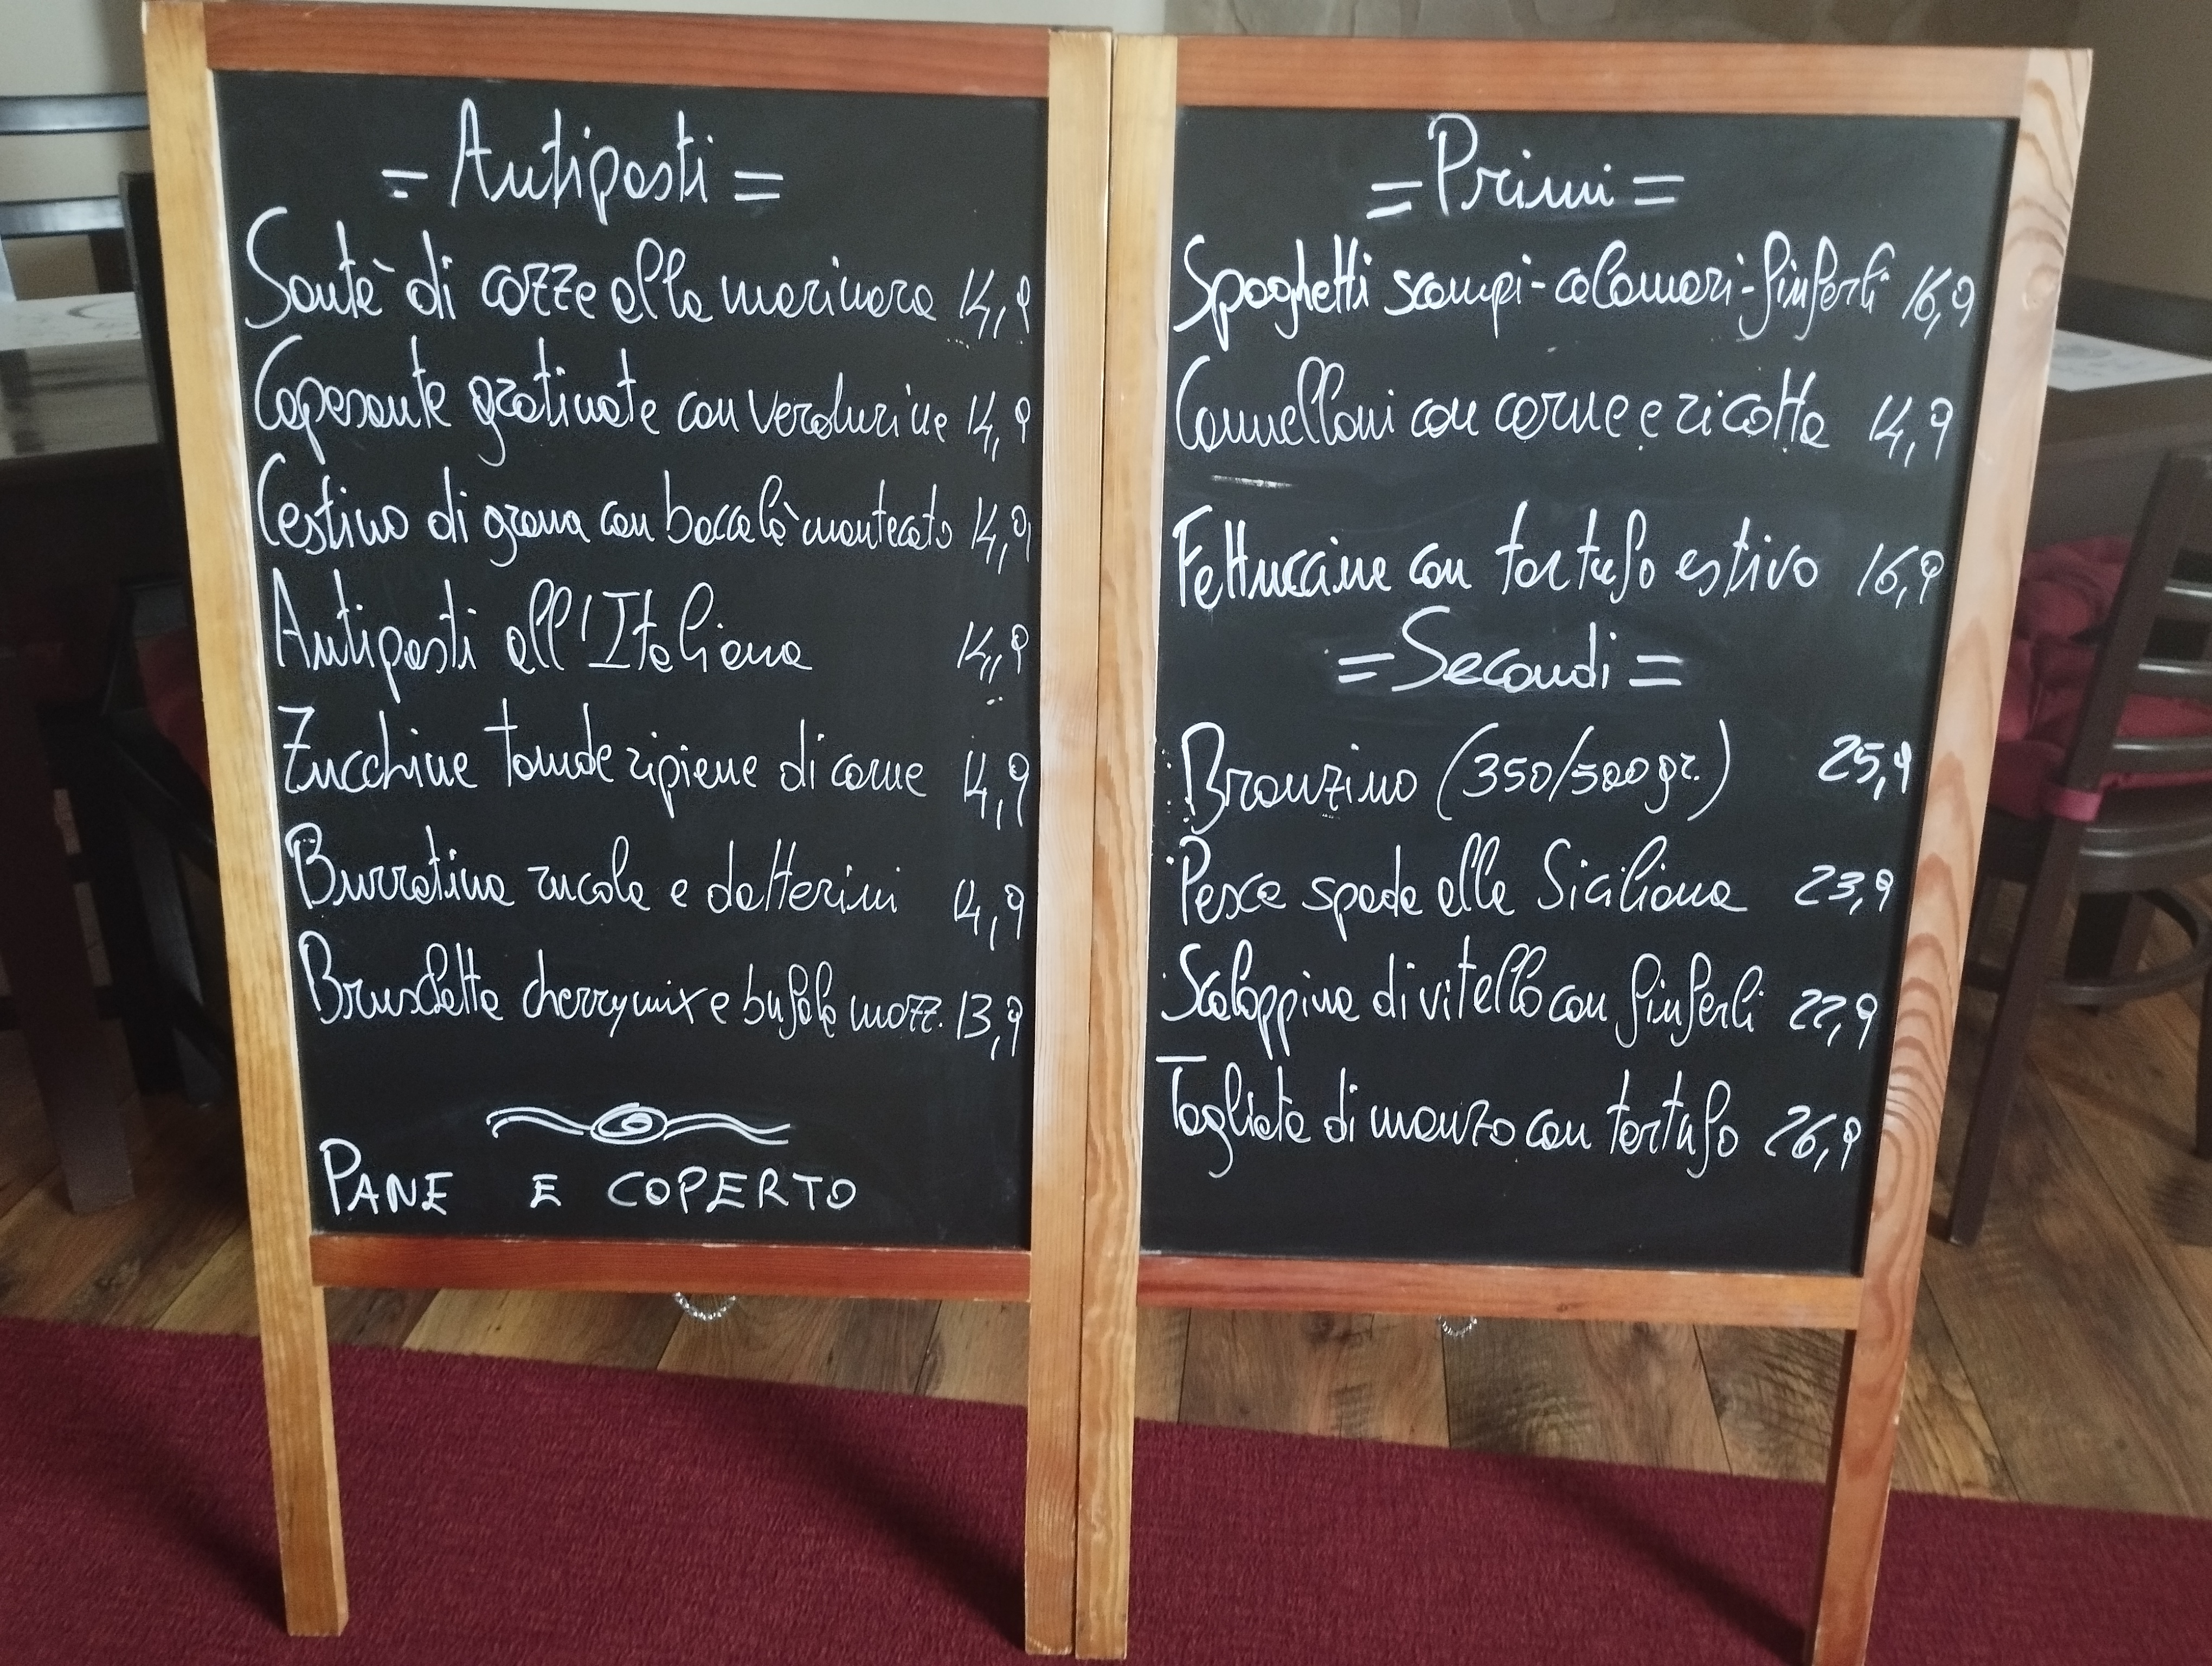 = Antipasti =
Sautè di cozze alla marinara 14,9
Capesante gratinate con verdurine 14,9
Cestino di grana con baccalà mantecato 14,9
Antipasti all'Italiana 14,9
Zucchine tonde ripiene di carne 14,9
Burratina rucola e datterini 14,9
Bruschetta cherrymix e bufala mozz. 13,9
PANE E COPERTO
= Primi =
Spaghetti scampi-calamari-finferli 16,9
Cannelloni con carne e ricotta 14,9
Fettuccine con tartufo estivo 16,9
= Secondi =
Branzino (350/500gr.) 25,9
Pesce spada alla Siciliana 23,9
Scaloppina di vitello con finferli 22,9
Tagliata di manzo con tartufo 26,9